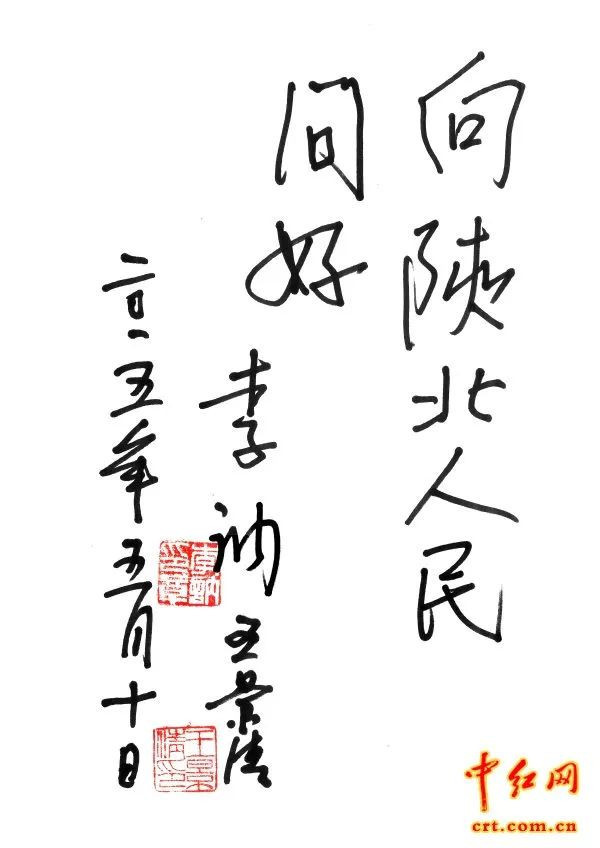 向陕北人民
问好
李讷 王景清
二〇一五年五月十日
王景清印
中红网
crt.com.cn